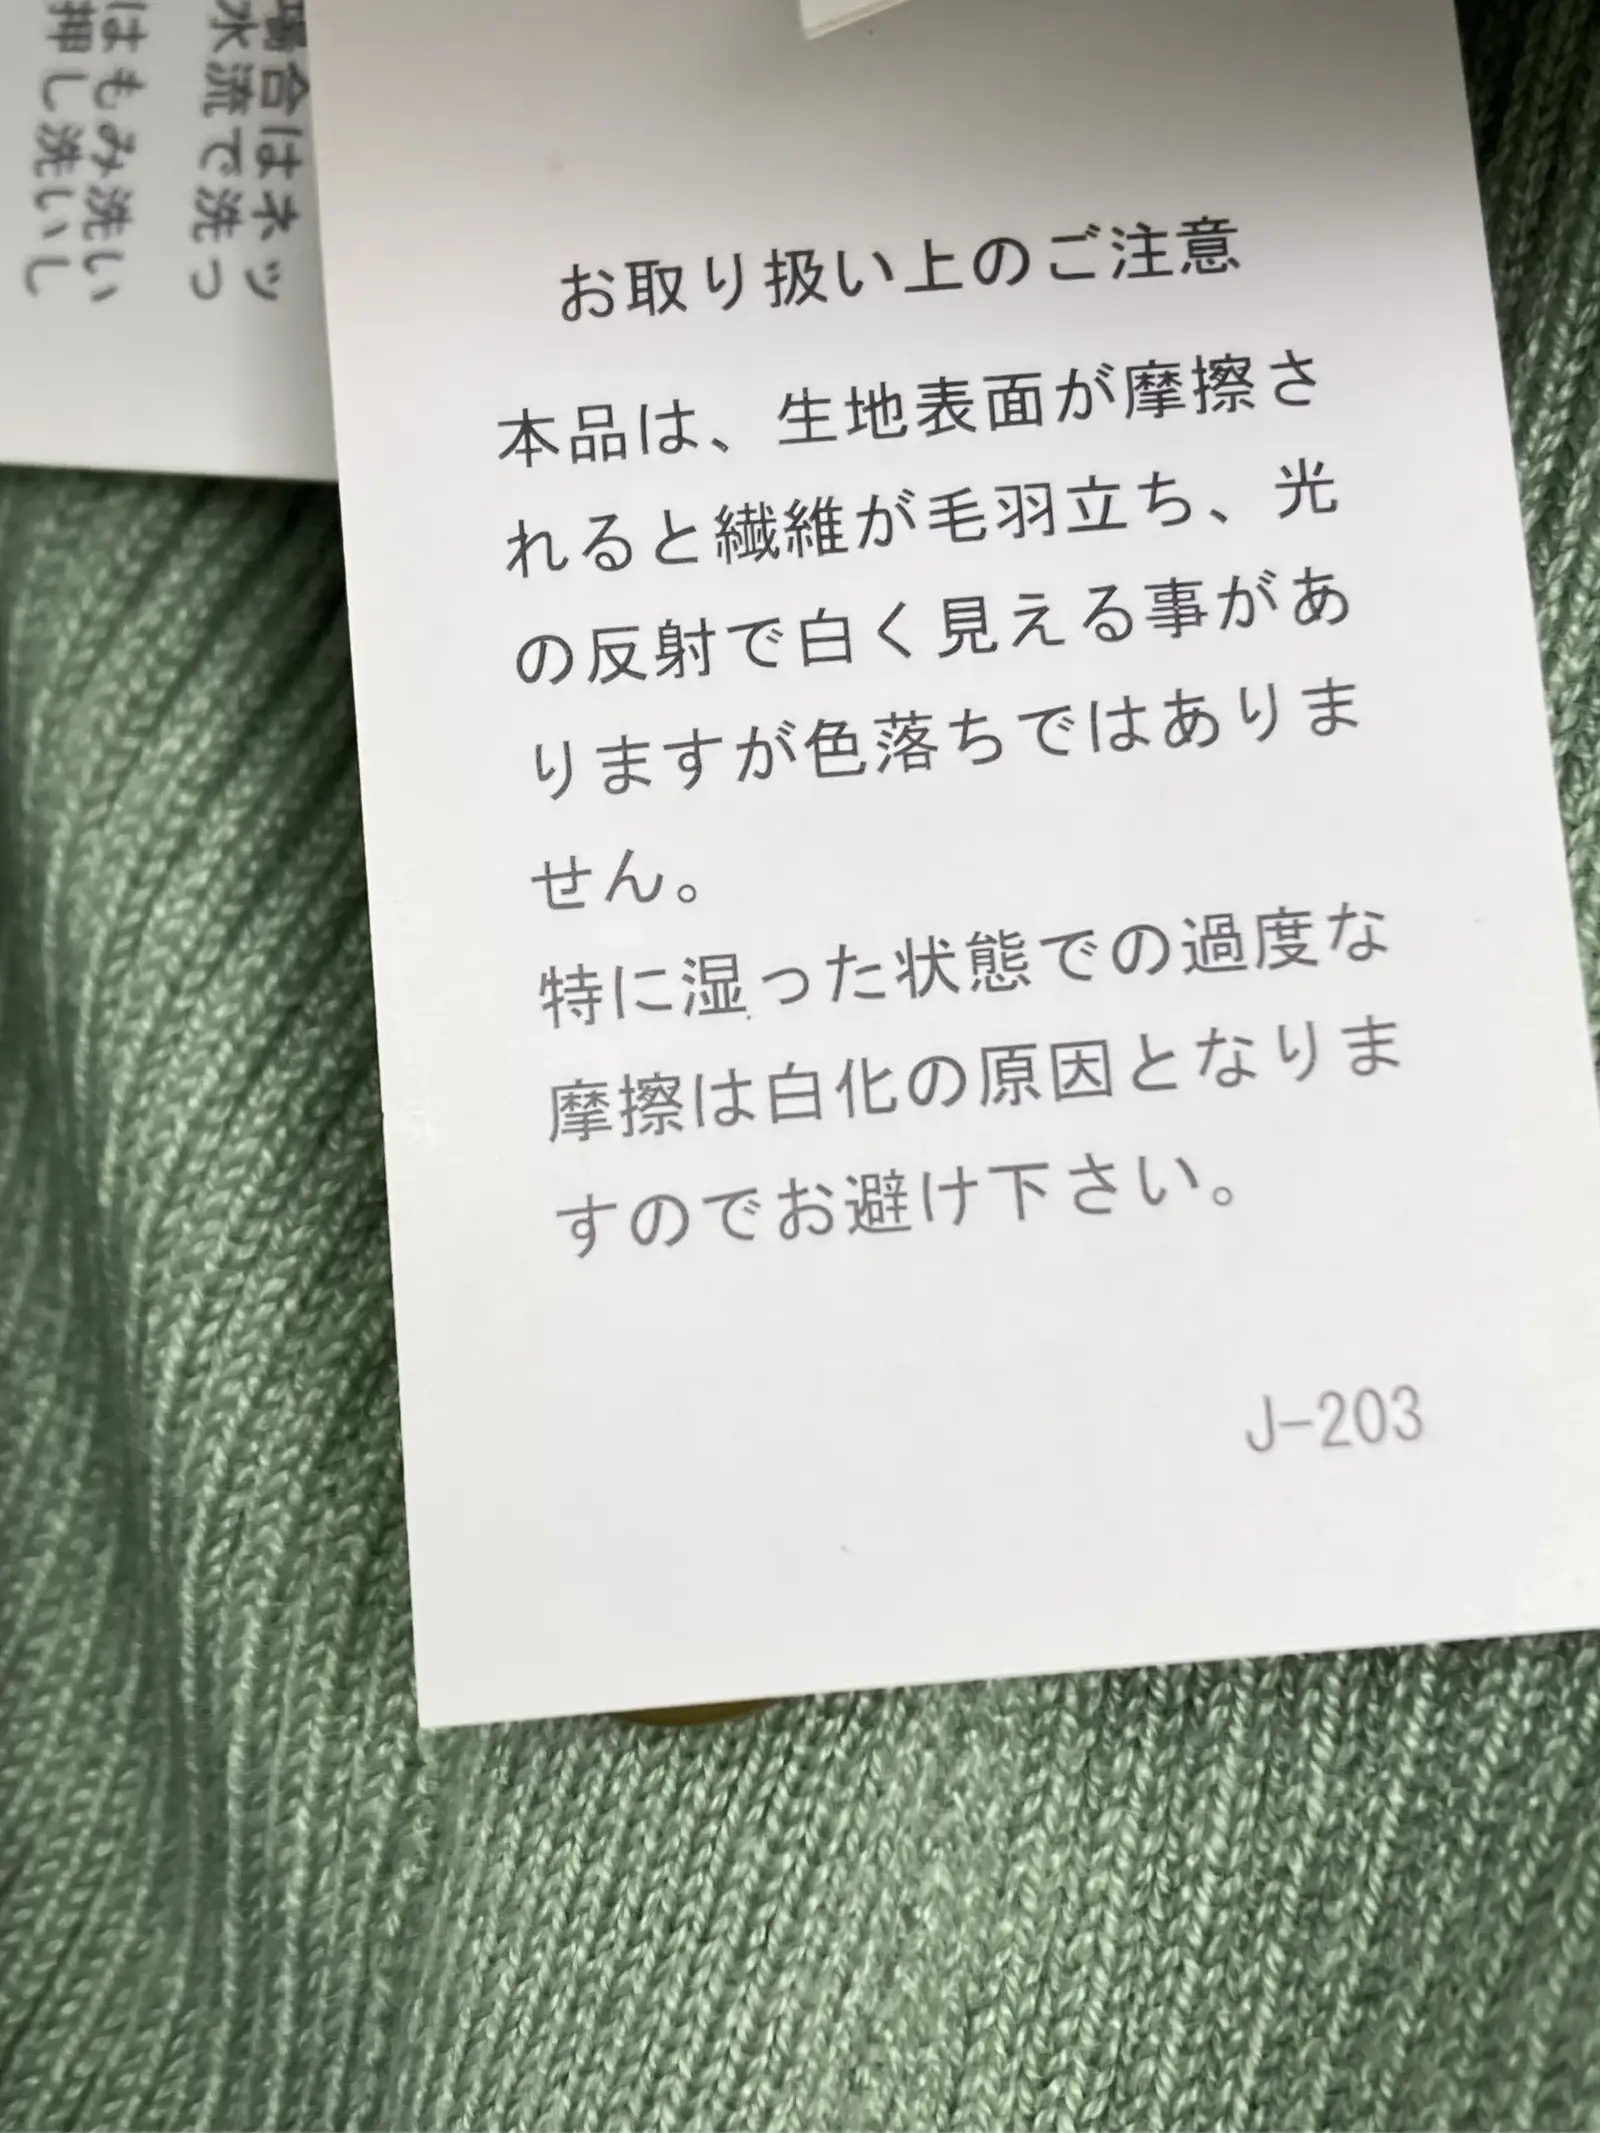 お取り扱い上のご注意
本品は、生地表面が摩擦さ
れると繊維が毛羽立ち、光
の反射で白く見える事があ
りますが色落ちではありま
せん。
特に湿った状態での過度な
摩擦は白化の原因となりま
すのでお避け下さい。
J-203
場合はネッ
水流で洗っ
はもみ洗い
押し洗いし